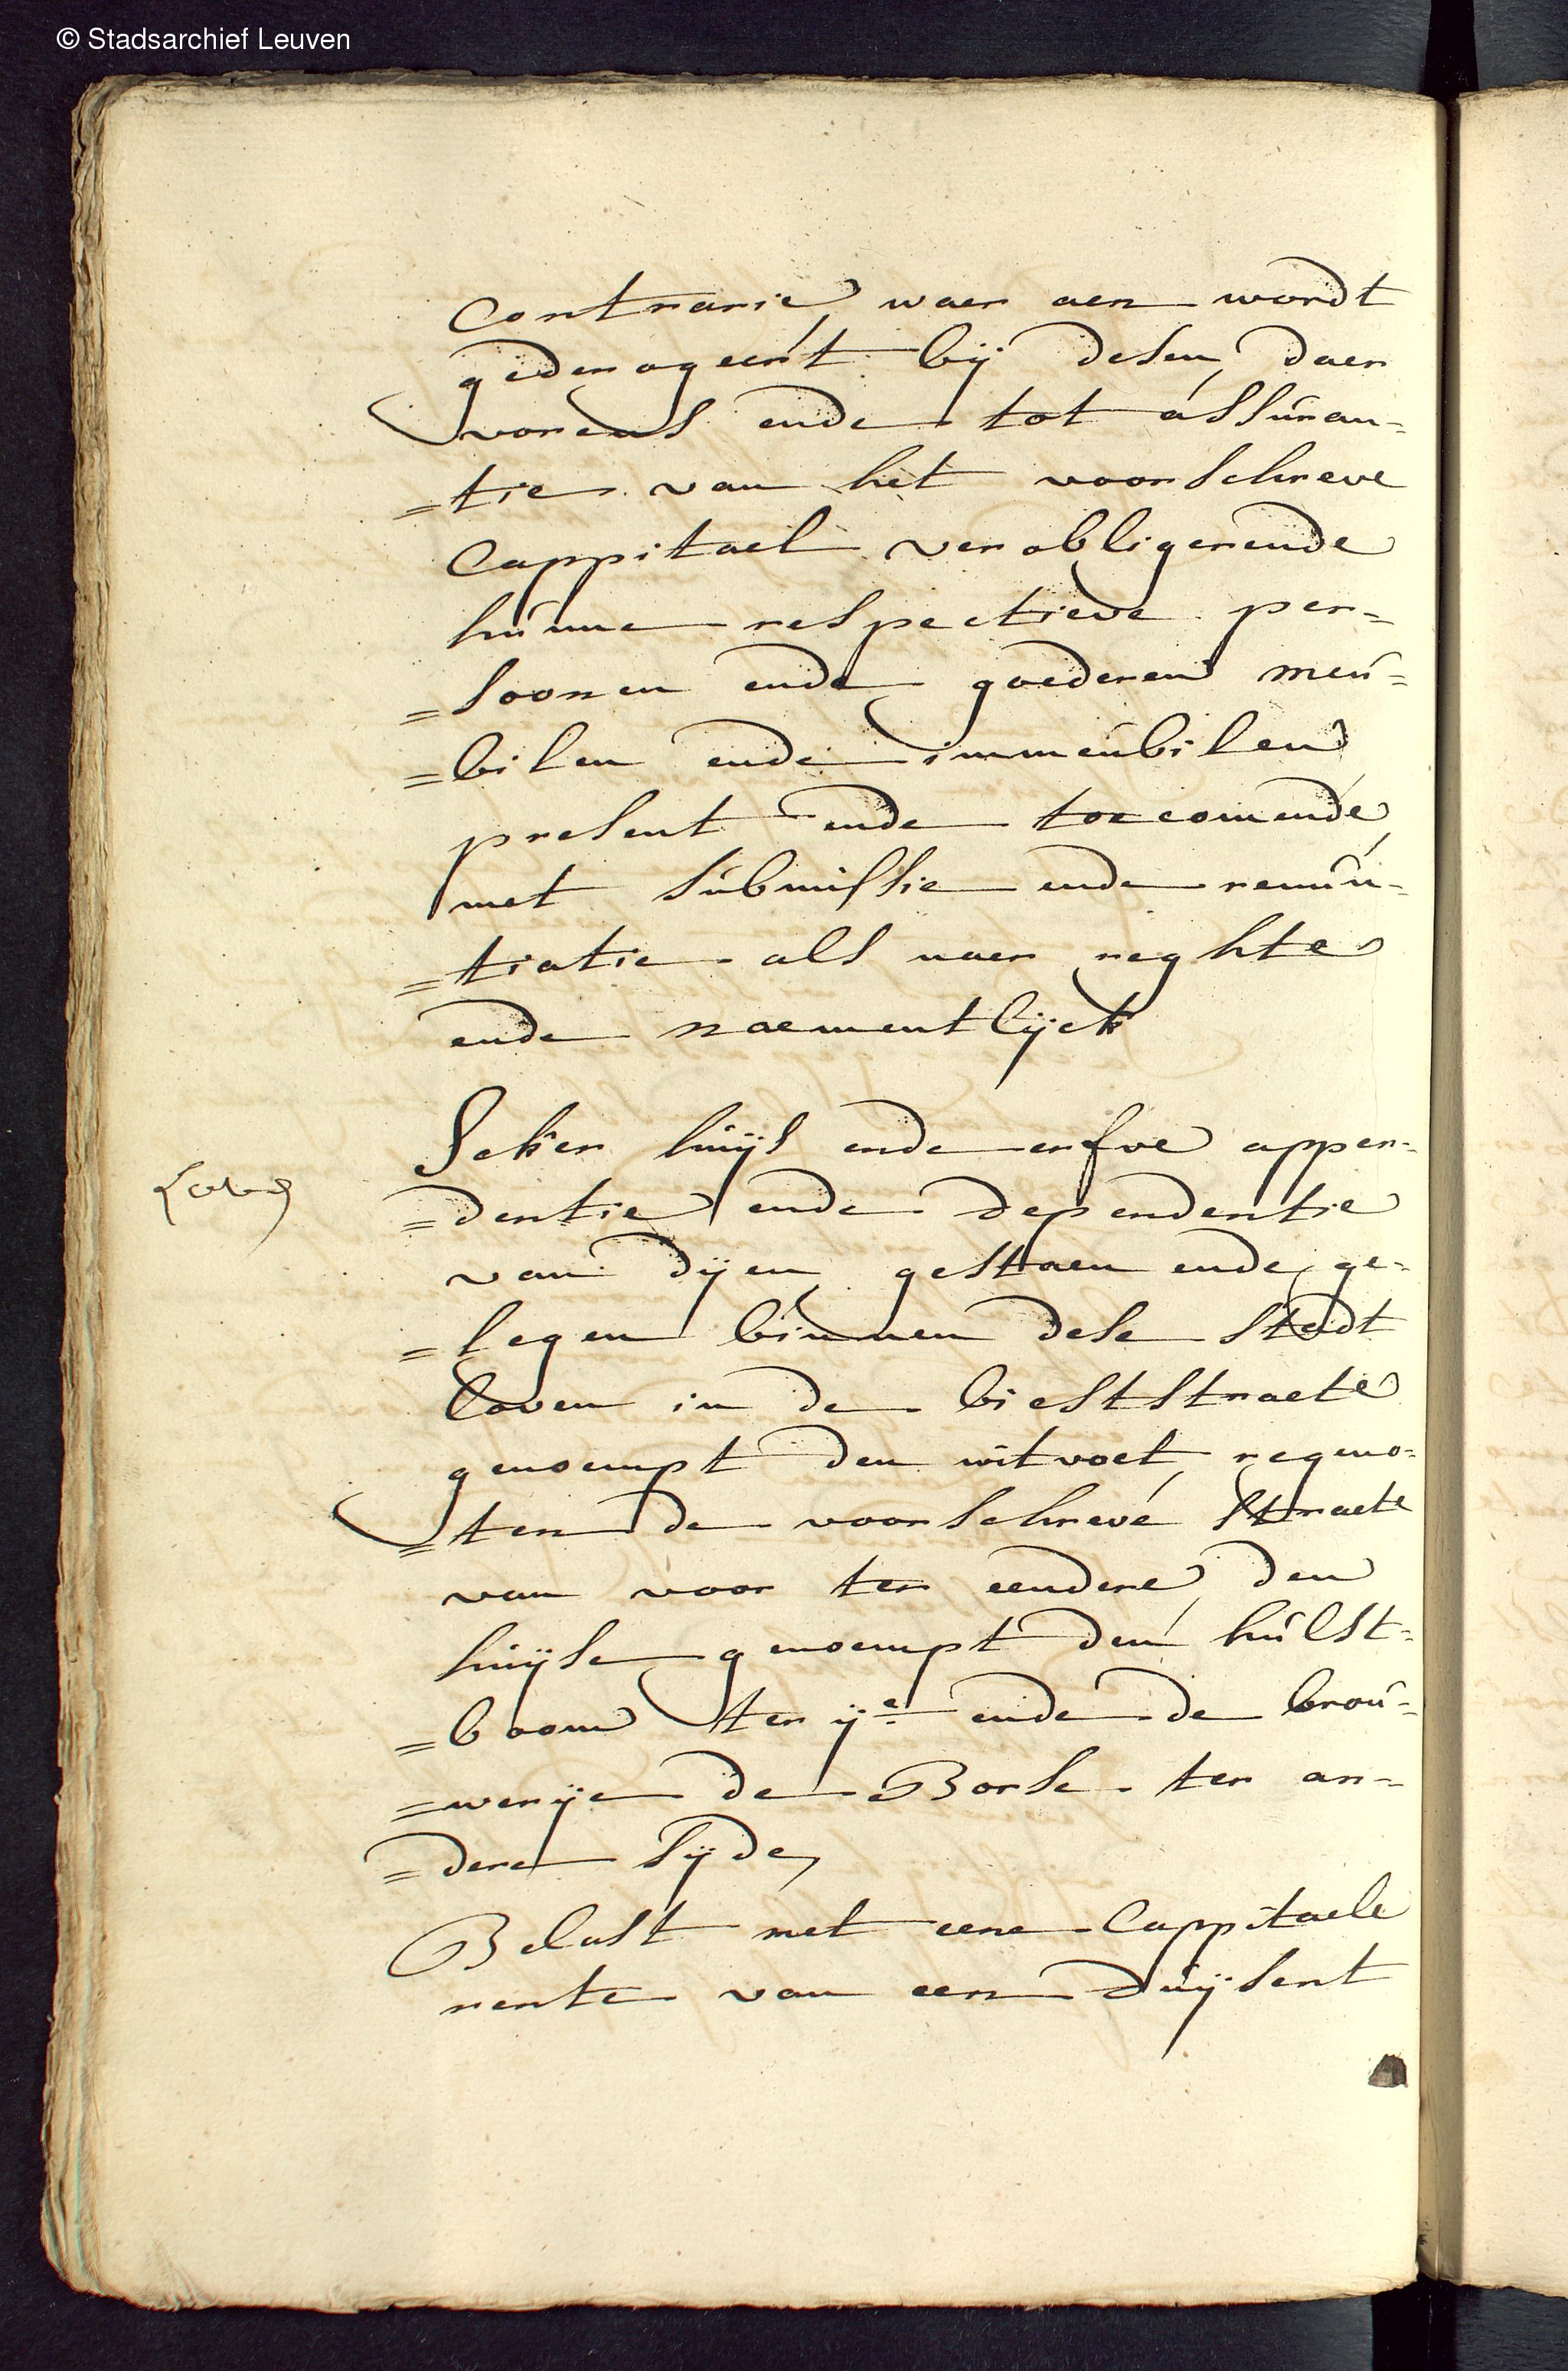 © Stadsarchief Leuven
contrarie, waer aen wordt
gederogeert bij desen, daer
vorens ende tot assuran-
=tie van het voorschreve
Cappitael verobligerende
hunne respectieve per=
=soonen ende goederen meu=
=bilen ende immeubilen
present ende toecomende,
met submissie ende renun-
=tiatie als naer reghte
ende naementlijck
Seker huijs ende erfve appen-
=dentie ende dependentie
van dijen, gestaen ende ge-
=legen binnen dese stadt
loven in de bieststraete
genoempt den witvoet, regeno=
=ten de voorschreve straete
van voor ter eendere, den
huijse genoempt den hulst-
=boom ter ije ende de brou-
=werije de Borse ter an-
=dere sijde,
Belast met eene Cappitaele
rente van een duijsent